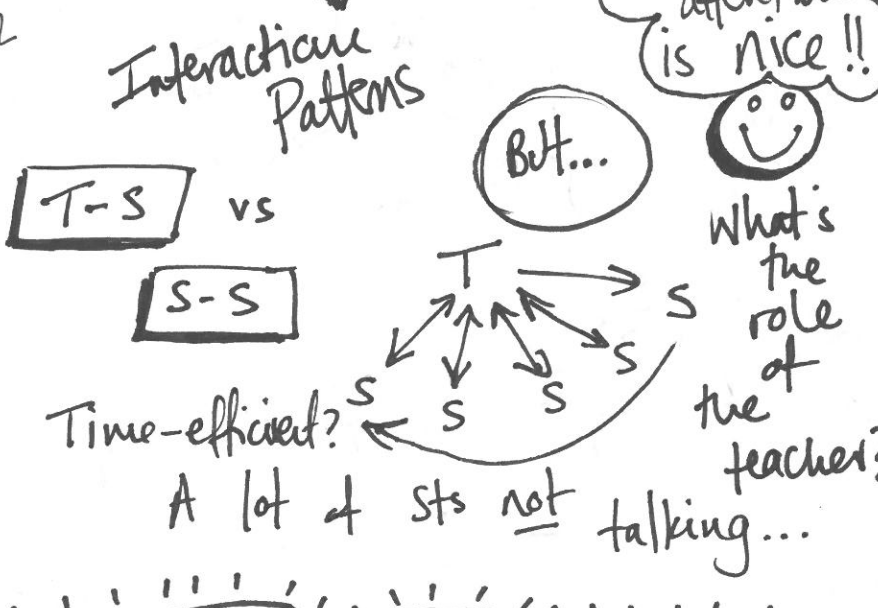 is nice!!
Interaction
Patterns
But...
T-S vs
S-S
T
S
S
S
S
S
What's
the
role
of
the
teacher?
Time-efficient?
A lot of Sts not talking...